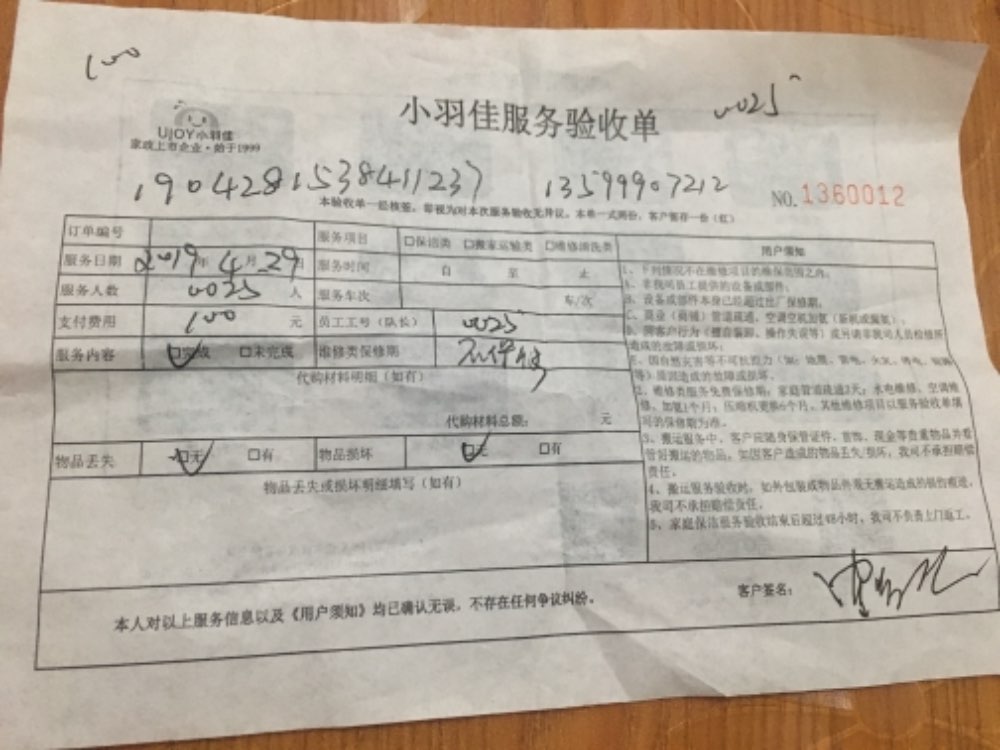 100
小羽佳服务验收单
0025
UJOY小羽佳
家政上市企业·始于1999
1904281538411237 13599907212
NO.1360012
本验收单一经核签，即视为对本次服务验收无异议。本单一式两份，客户留存一份（红）
订单编号 服务项目 □保洁类 □搬家运输类 □维修清洗类
服务日期 2019年4月29日 服务时间 自 至 止
服务人数 0025 人 服务车次 车/次
支付费用 100 元 员工工号（队长） 0025
服务内容 □完成 □未完成 维修类保修期 不保修
代购材料明细（如有）
代购材料总额： 元
物品丢失 □无 □有 物品损坏 □无 □有
物品丢失或损坏明细填写（如有）
用户须知
1、下列情况不在维修项目的维保范围之内：
A、非我司员工提供的设备或部件；
B、设备或部件本身已经超过出厂保修期。
C、商业（商铺）管道疏通，空调空机加氨（新机或漏氨）；
D、因客户行为（擅自装卸、操作失误等）或另请非我司人员检修所
造成的故障或损坏；
E、因自然灾害等不可抗拒力（如：地震、雷电、火灾、
等）原因造成的故障或损坏。
2、维修类服务免费保修期：家庭管道疏通7天；水电维修、空调维
修、加氨1个月；压缩机更换6个月。其他维修项目以服务验收单填
写的保修期为准。
3、搬运服务中，客户应随身保管证件、首饰、现金等贵重物品并看
管好搬运的物品，如因客户造成的物品丢失/损坏，我司不承担赔偿
责任。
4、搬运服务验收时，如外包装或物品外观无搬运造成的损伤痕迹，
我司不承担赔偿责任。
5、家庭保洁服务验收结束后超过48小时，我司不负责上门返工。
本人对以上服务信息以及《用户须知》均已确认无误，不存在任何争议纠纷。
客户签名：